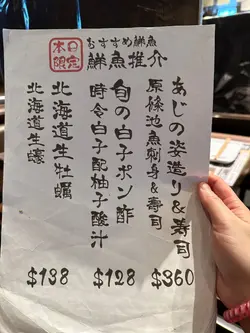 本日限定
おすすめ鮮魚
鮮魚推介
あじの姿造り&寿司
原條池魚刺身&壽司
$360
旬の白子ポン酢
時令白子配柚子酸汁
$128
北海道生牡蠣
北海道生蠔
$138